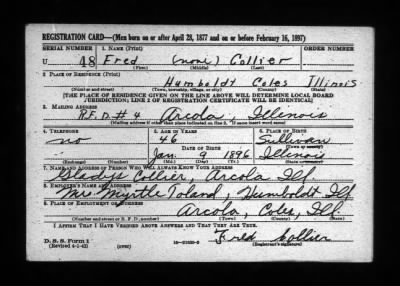 REGISTRATION CARD—(Men born on or after April 28, 1877 and on or before February 16, 1897)
SERIAL NUMBER 1. NAME (Print) ORDER NUMBER
U 48 Fred (none) Collier
(First) (Middle) (Last)
2. PLACE OF RESIDENCE (Print)
Humboldt Coles Illinois
(Number and street) (Town, township, village, or city) (County) (State)
[THE PLACE OF RESIDENCE GIVEN ON THE LINE ABOVE WILL DETERMINE LOCAL BOARD
JURISDICTION; LINE 2 OF REGISTRATION CERTIFICATE WILL BE IDENTICAL]
3. MAILING ADDRESS
R.F.D. #4 Arcola, Illinois
[Mailing address if other than place indicated on line 2. If same insert word same]
4. TELEPHONE 5. AGE IN YEARS 6. PLACE OF BIRTH
no 46 Sullivan
DATE OF BIRTH (Town or county)
Jan. 9 1896 Illinois
(Exchange) (Number) (Mo.) (Day) (Yr.) (State or country)
7. NAME AND ADDRESS OF PERSON WHO WILL ALWAYS KNOW YOUR ADDRESS
Gladys Collier Arcola Ill.
8. EMPLOYER'S NAME AND ADDRESS
Mrs Myrtle Toland, Humboldt Ill
9. PLACE OF EMPLOYMENT OR BUSINESS
Arcola, Coles, Ill.
(Number and street or R. F. D. number) (Town) (County) (State)
I AFFIRM THAT I HAVE VERIFIED ABOVE ANSWERS AND THAT THEY ARE TRUE.
D. S. S. Form 1
(Revised 4-1-42) (over) Fred Collier
(Registrant's signature)